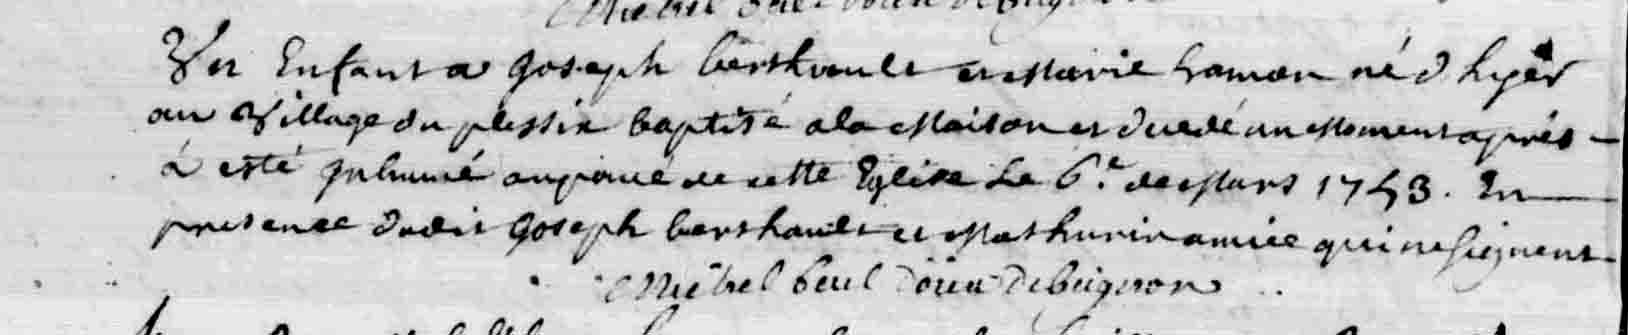 Un Enfant a Joseph berthault et Marie hamon né d hyer
au Village du plessix baptisé a la Maison et decedé un Moment aprés
à esté Inhumé au pavé de cette Eglise Le 6.e de Mars 1743. En
presence dudit Joseph berthault et Mathurin qui ne signent
Michel doyen de bugnon